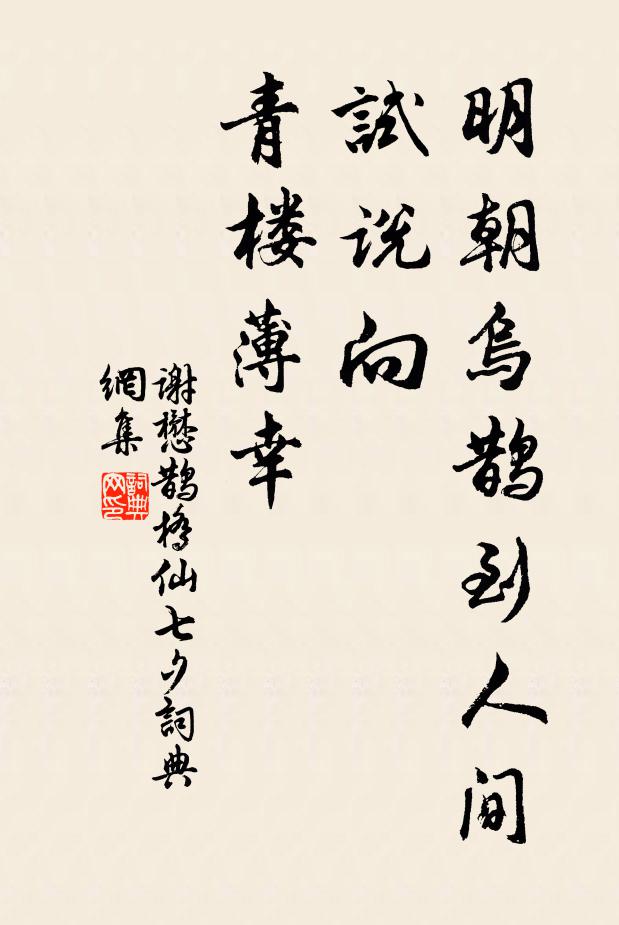 明朝烏鹊到人间
試説向
青楼薄幸
谢懋鹊橋仙七夕詞典
網集
詞典
网印